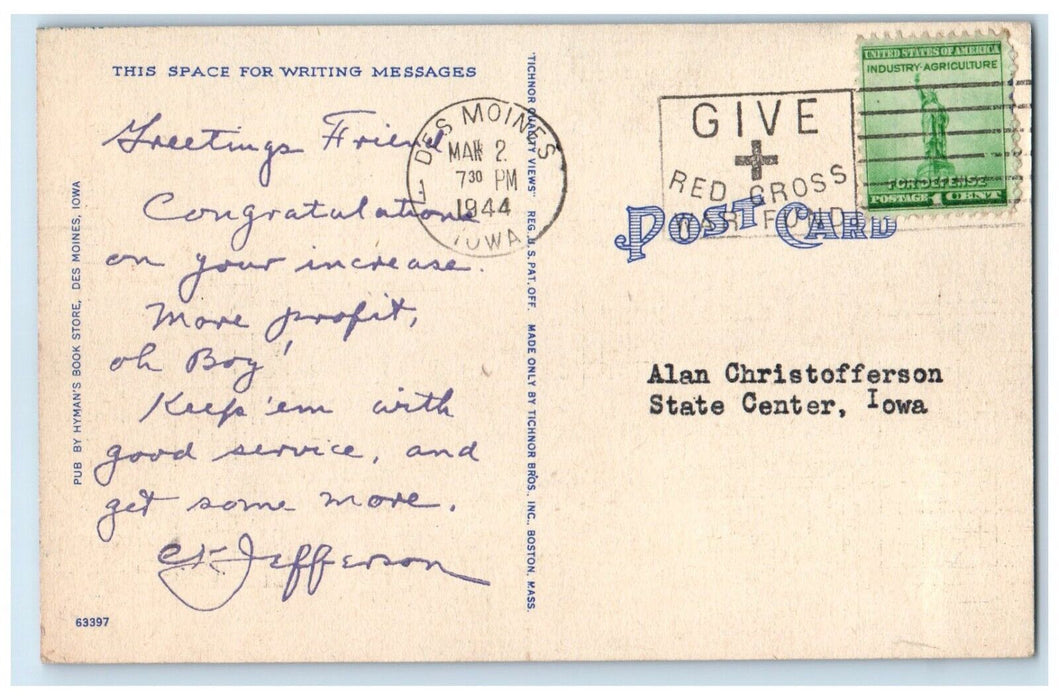 THIS SPACE FOR WRITING MESSAGES
Greetings Friend
Congratulations
on your increase.
More profit,
oh Boy!
Keep 'em with
good service, and
get some more.
Jefferson
PUB BY HYMAN'S BOOK STORE, DES MOINES, IOWA
63397
"TICHNOR QUALITY VIEWS" REG. U. S. PAT. OFF. MADE ONLY BY TICHNOR BROS., INC., BOSTON, MASS.
DES MOINES
MAR 2
7 30 PM
1944
IOWA
GIVE
RED CROSS
WAR FUND
UNITED STATES OF AMERICA
INDUSTRY-AGRICULTURE
FOR DEFENSE
POSTAGE 1 CENT
POST CARD
Alan Christofferson
State Center, Iowa